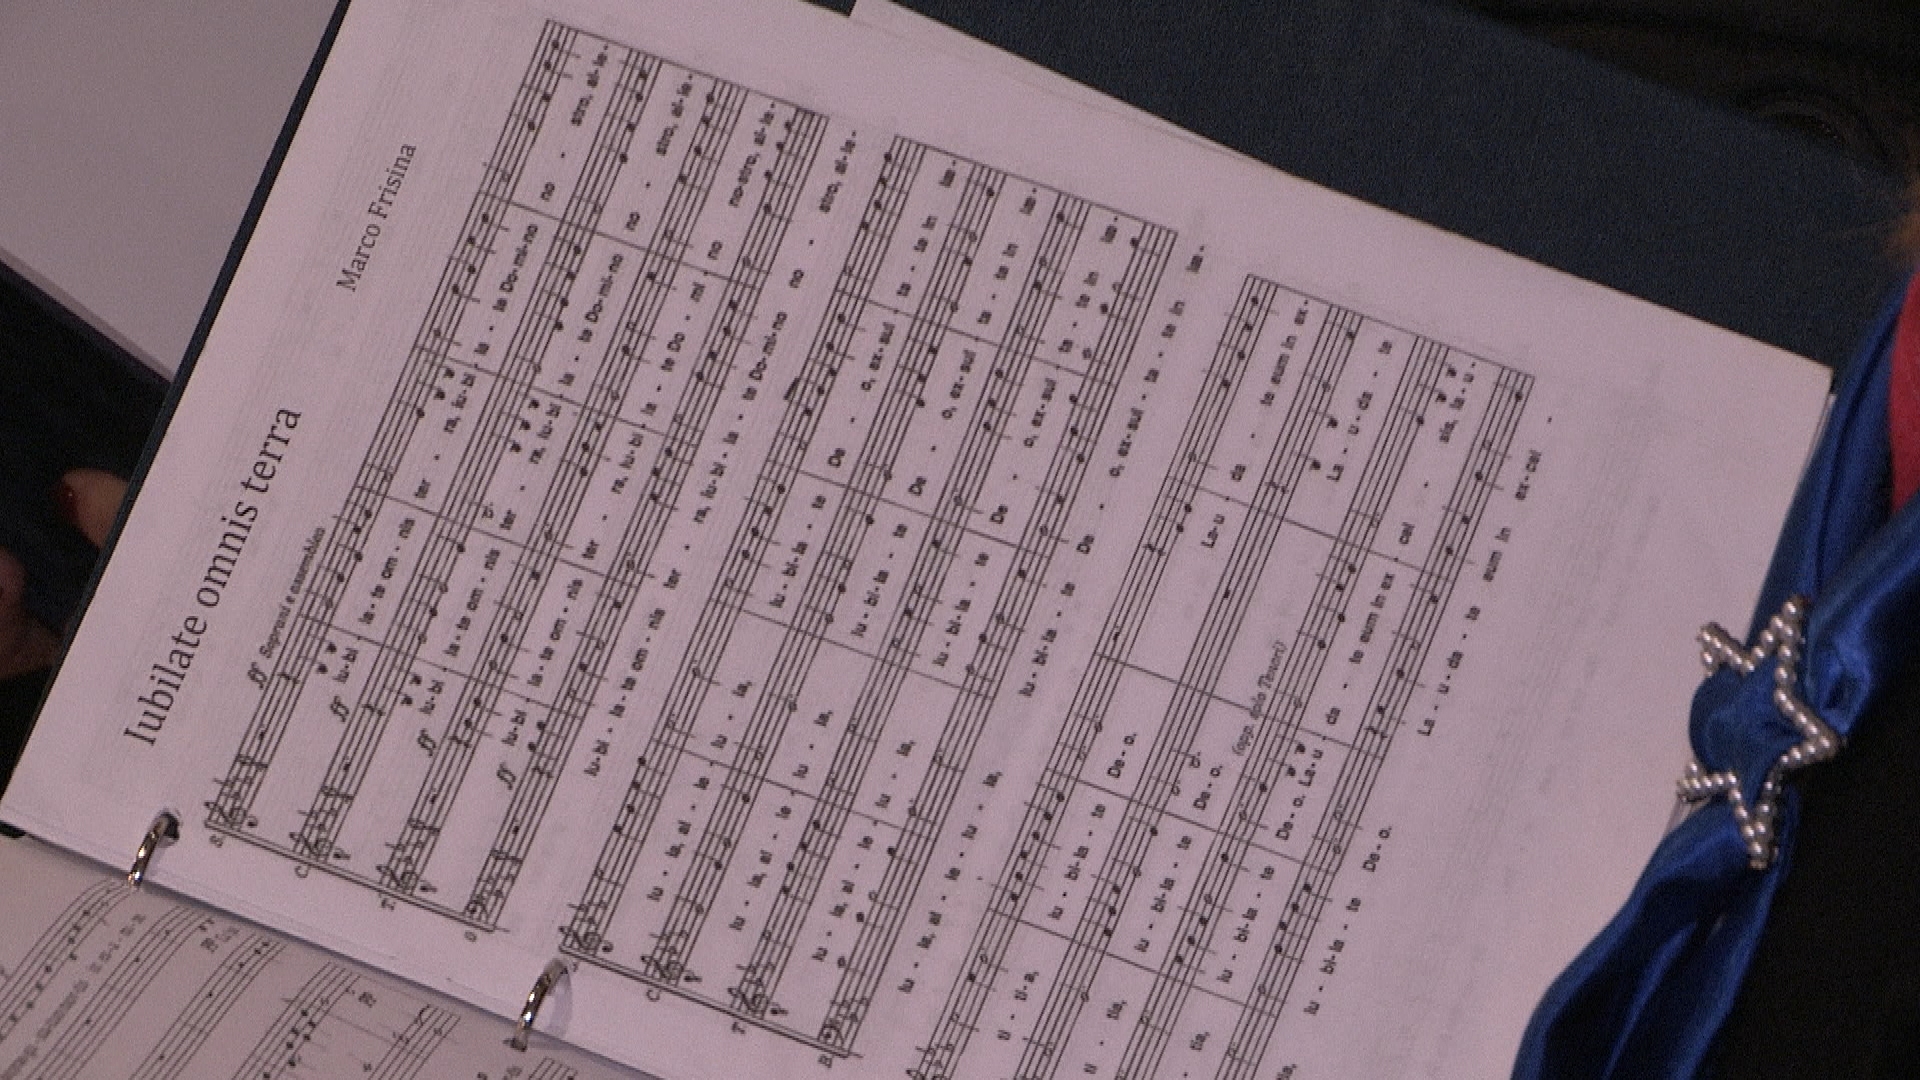 Iubilate omnis terra
Marco Frisina
ff Soprani e assemblea
S
Iu-bi - la - te om - nis ter - ra, iu-bi - la - te Do-mi-no no - stro, al-le-
ff
C
Iu-bi - la - te om - nis ter - ra, iu-bi - la - te Do-mi-no no - stro, al-le-
ff
T
Iu-bi - la - te om - nis ter - ra, iu-bi - la - te Do - mi - no no-stro, al-le-
ff
Iu-bi - la - te om - nis ter - ra, iu-bi - la - te Do-mi-no no - stro, al-le-
lu - ia, al - le - lu - ia, iu - bi-la - te De - o, ex-sul - ta - te in lae-
C
lu - ia, al - le - lu - ia, iu - bi-la - te De - o, ex-sul - ta - te in lae-
T
lu - ia, al - le - lu - ia, iu - bi-la - te De - o, ex-sul - ta - te in lae-
B
lu - ia, al - le - lu - ia, iu - bi-la - te De - o, ex-sul - ta - te in lae-
ti - ti-a, iu - bi-la - te De - o. La-u - da - te eum in ex-
ti - tia, iu - bi-la - te De - o. La - u-da - te
(opp. solo Tenori)
tia, iu - bi-la - te De - o. La-u - da - te eum in ex - cel - sis, la-u-
tia, iu - bi-la - te De - o. La - u-da - te eum in ex-cel -